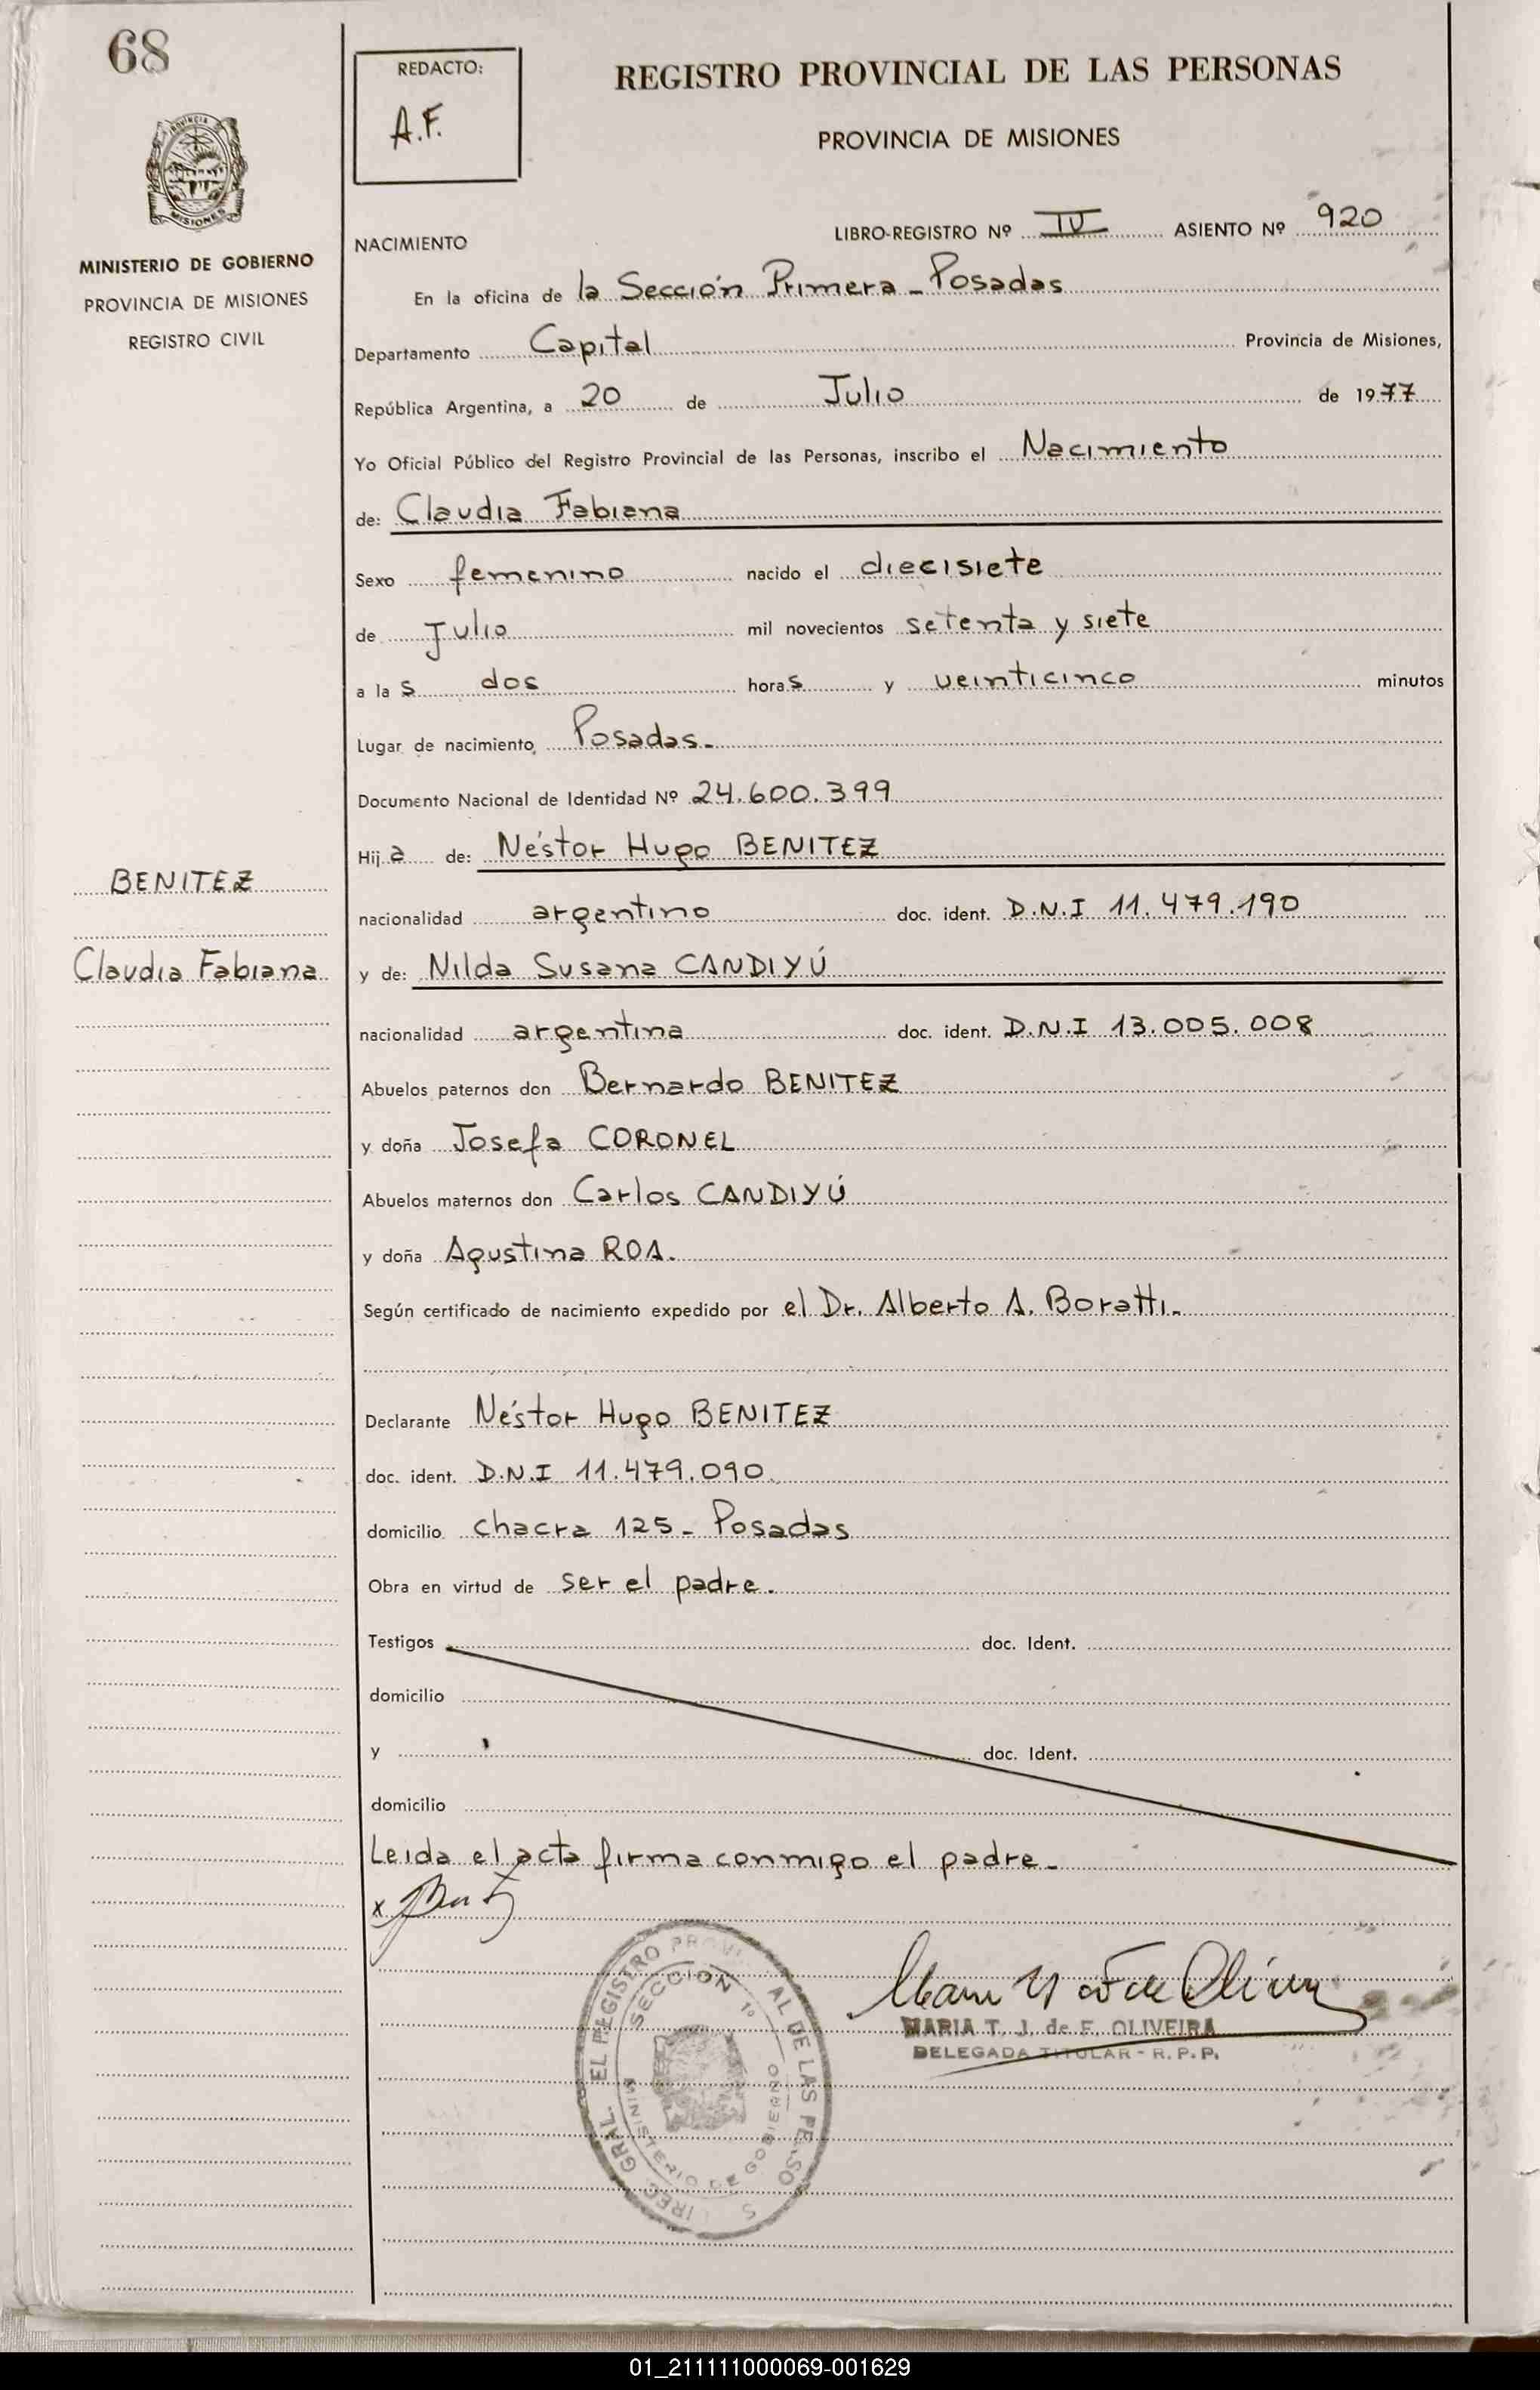 68
REDACTO:
A.F.
REGISTRO PROVINCIAL DE LAS PERSONAS
PROVINCIA DE MISIONES
PROVINCIA
MISIONES
MINISTERIO DE GOBIERNO
PROVINCIA DE MISIONES
REGISTRO CIVIL
NACIMIENTO
LIBRO-REGISTRO Nº IV ASIENTO Nº 920
En la oficina de la Sección Primera - Posadas
Departamento Capital Provincia de Misiones,
República Argentina, a 20 de Julio de 1977
Yo Oficial Público del Registro Provincial de las Personas, inscribo el Nacimiento
de: Claudia Fabiana
Sexo femenino nacido el diecisiete
de Julio mil novecientos setenta y siete
a las dos horas y veinticinco minutos
Lugar de nacimiento Posadas.-
Documento Nacional de Identidad Nº 24.600.399
Hija de: Néstor Hugo BENITEZ
BENITEZ
nacionalidad argentino doc. ident. D.N.I 11.479.190
Claudia Fabiana
y de: Nilda Susana CANDIYÚ
nacionalidad argentina doc. ident. D.N.I 13.005.008
Abuelos paternos don Bernardo BENITEZ
y doña Josefa CORONEL
Abuelos maternos don Carlos CANDIYÚ
y doña Agustina ROA.
Según certificado de nacimiento expedido por el Dr. Alberto A. Boratti.-
Declarante Néstor Hugo BENITEZ
doc. ident. D.N.I 11.479.090
domicilio chacra 125 - Posadas
Obra en virtud de ser el padre.
Testigos doc. Ident.
domicilio
y doc. Ident.
domicilio
Leida el acta firma conmigo el padre.-
x
SECCION 1º
MINISTERIO DE GOBIERNO
MARIA T. J. de F. OLIVEIRA
DELEGADA TITULAR - R.P.P.
01_211111000069-001629